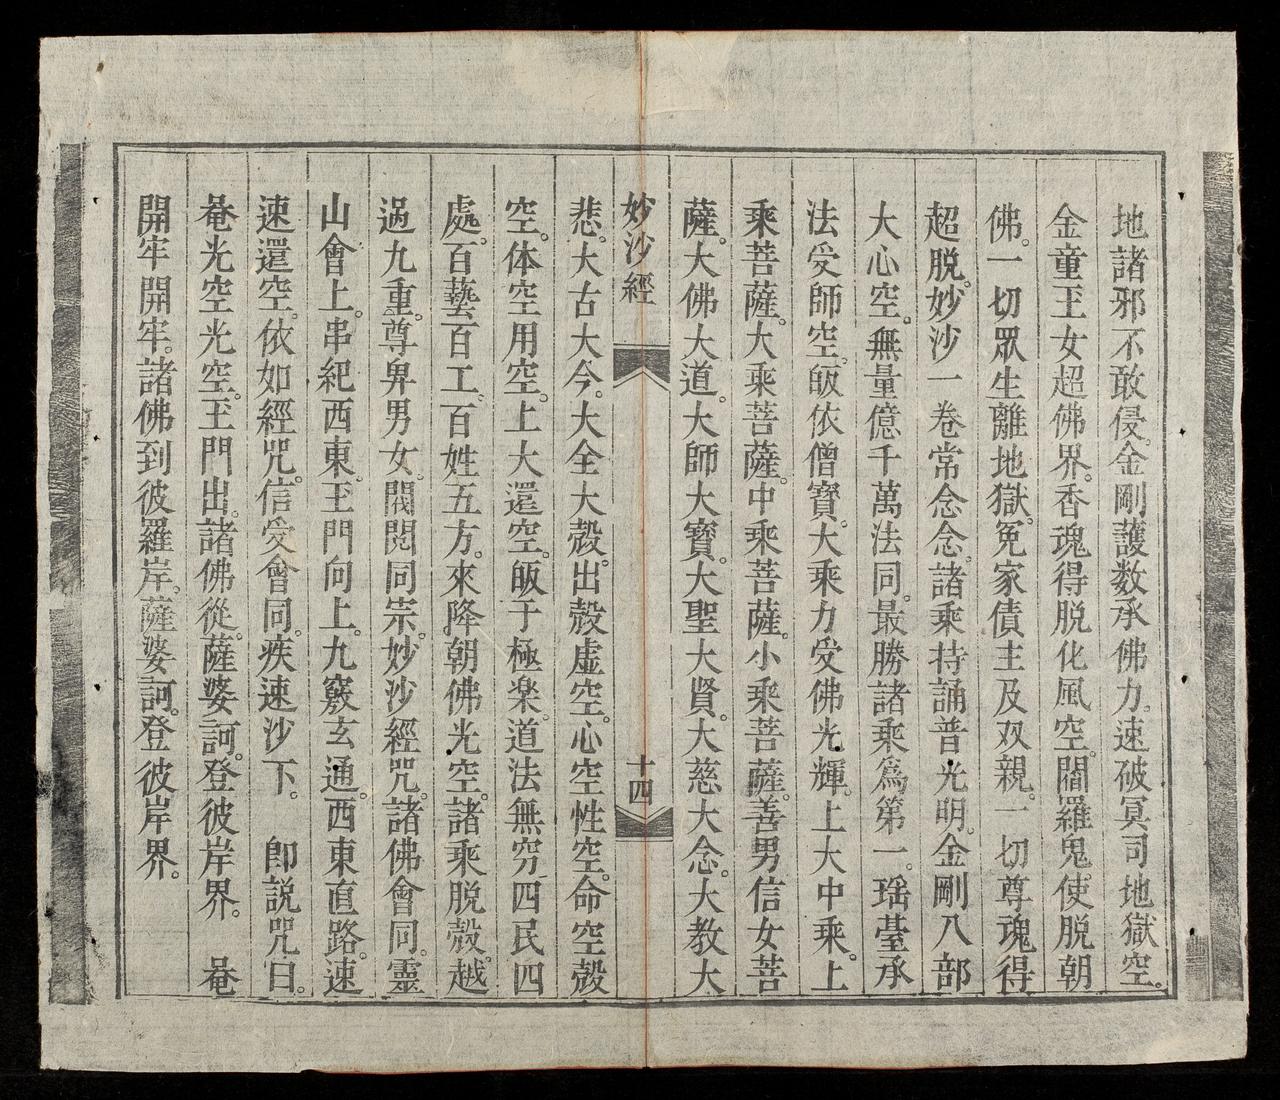 地諸邪不敢侵。金剛護数承佛力。速破冥司地獄空。
金童玉女超佛界。香魂得脫化風空。閻羅鬼使脫朝
佛。一切眾生離地獄。冤家債主及双親。一切尊魂得
超脫。妙沙一卷常念念。諸乘持誦普光明。金剛八部
大心空。無量億千萬法同。最勝諸乘爲第一。瑶臺承
法受師空。皈依僧寶。大乘力受佛光輝。上大中乘。上
乘菩薩。大乘菩薩。中乘菩薩。小乘菩薩。善男信女菩
薩。大佛大道。大師大寶。大聖大賢。大慈大念。大教大
妙沙經
十四
悲。大古大今。大全大殼。出殼虛空。心空性空。命空殼
空。体空用空。上大還空。皈于極楽。道法無穷。四民四
處。百藝百工。百姓五方。來降朝佛光空。諸乘脫殼。越
過九重。尊卑男女。閥閱同宗。妙沙經咒。諸佛會同。靈
山會上。串紀西東。玉門向上。九竅玄通。西東直路。速
速還空。依如經咒。信受會同。疾速沙下。 卽説咒曰。
菴光空光空。玉門出。諸佛從。薩婆訶。登彼岸界。 菴
開牢開牢。諸佛到彼羅岸。薩婆訶。登彼岸界。